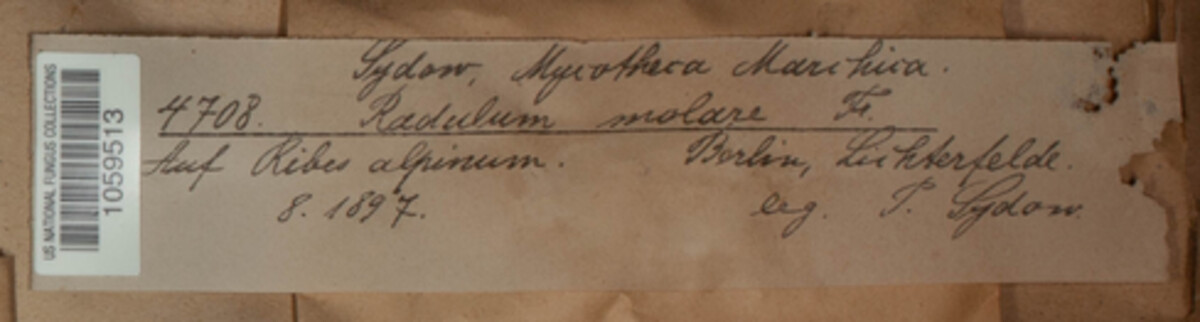 US NATIONAL FUNGUS COLLECTIONS
1059513
Sydow, Mycotheca Marchica.
4708. Radulum molare Fr.
Auf Ribes alpinum. Berlin, Lichterfelde.
8. 1897. leg. P. Sydow.